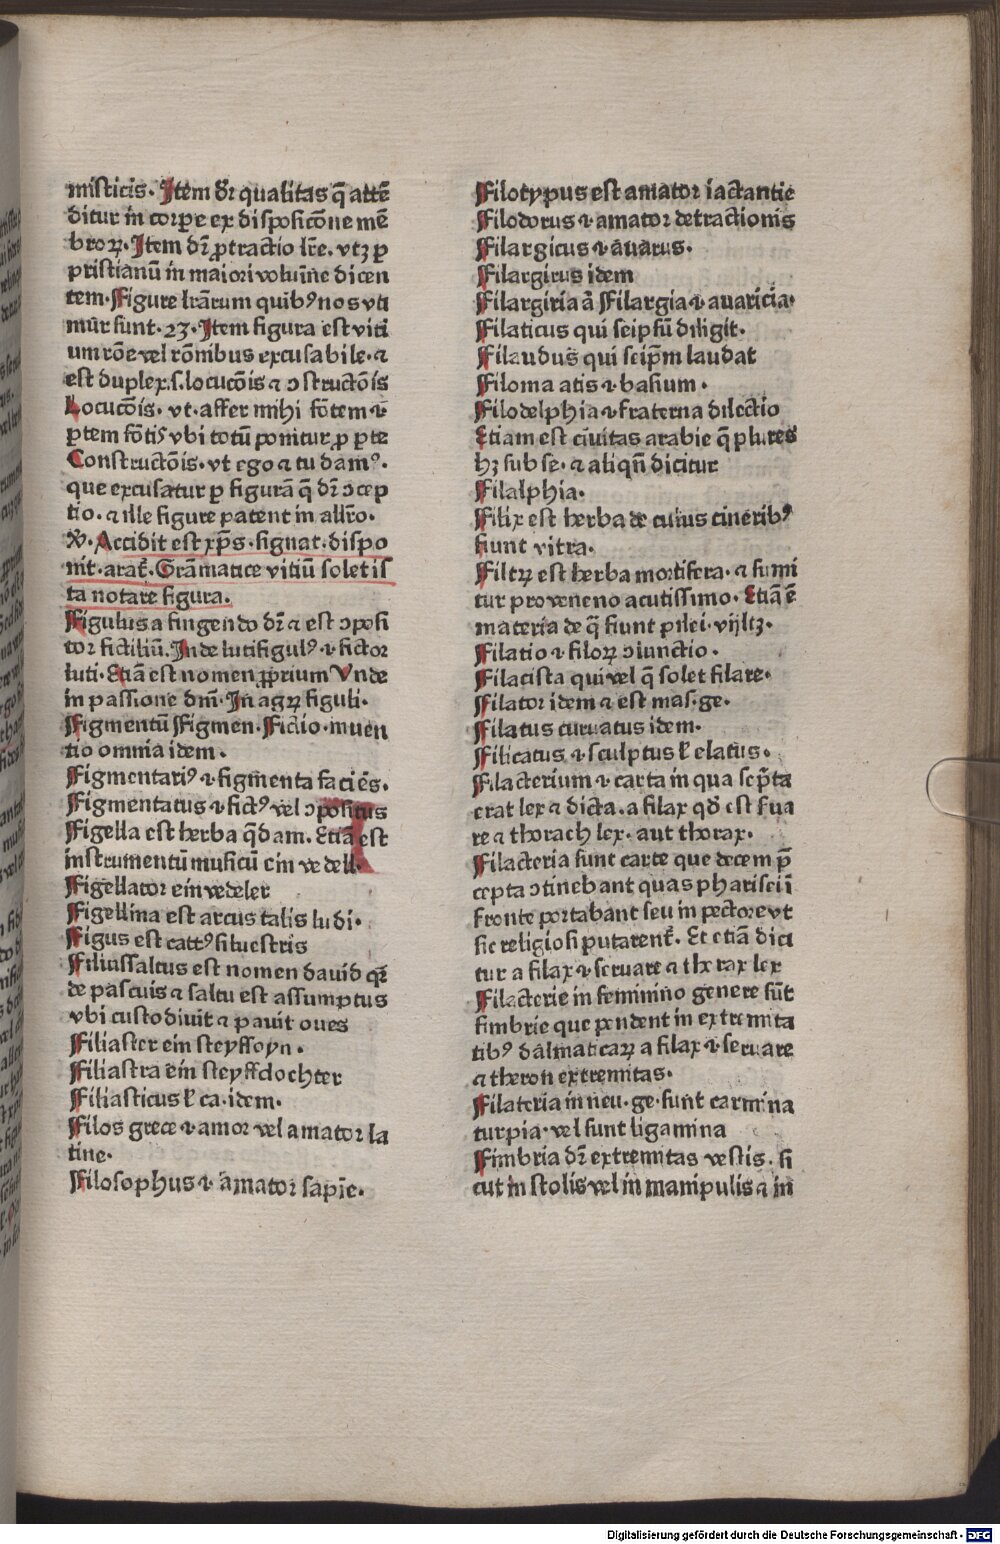 misticis. Item dr̄ qualitas q̄ attē
ditur in corpe ex disposicōne mē
broꝝ. Item dr̄ ꝓtractio lr̄e. vtꝫ ꝑ
pristianū in maiori voluīne dicen
tem. Figure lr̄arum quibꝰ nos vti
mūr sunt. 23. Item figura est viti
um rōe vel rōnibus excusabile. ⁊
est duplex .s. locucōis ⁊ ↄstructōis
Locucōis. vt. affer mihi fōtem ⁊
ꝑtem fōtis vbi totū ponitur ꝓ ꝑte
Constructōis. vt ego ⁊ tu damꝰ.
que excusatur ꝑ figurā q̄ dr̄ ↄcep
tio. ⁊ ille figure patent in allr̄o.
Accidit est xp̄s. signat. dispo
nit. arat̄. Grāmatice vitiū solet is
ta notare figura.
Figulus a fingendo dr̄ ⁊ est ↄposi
tor fictiliū. Inde lutifigulꝰ ⁊ fictor
luti. Etiā est nomen ꝓprium Vnde
in passione dnī. In agꝝ figuli.
Figmentū Figmen. Fictio. inuen
tio omnia idem.
Figmentariꝰ ⁊ figmenta faciēs.
Figmentatus ⁊ fictꝰ vel ↄpositus
Figella est herba q̄dam. Etiā est
instrumentū musicū ein vedell.
Figellator ein vedeler
Figellina est arcus talis ludi.
Figus est cattꝰ siluestris
Filiussaltus est nomen dauid qꝛ
de pascuis ⁊ saltu est assumptus
vbi custodiuit ⁊ pauit oues
Filiaster ein steyffsoyn.
Filiastra ein steyffdochter
Filiasticus ł ca. idem.
Filos grece ⁊ amor vel amator la
tine.
Filosophus ⁊ amator sapīe.
Filotypus est amator iactantie
Filodorus ⁊ amator detractionis
Filargicus ⁊ auarus.
Filargirus idem
Filargiria ā Filargia ⁊ auaricia.
Filaticus qui seipsū diligit.
Filaudus qui seip̄m laudat
Filoma atis ⁊ basium.
Filodelphia ⁊ fraterna dilectio
Etiam est ciuitas arabie q̄ plures
hꝫ sub se. ⁊ aliqn̄ dicitur
Filalphia.
Filix est herba de cuius cineribꝰ
fiunt vitra.
Filtꝝ est herba mortifera. ⁊ sumi
tur pro veneno acutissimo. Etiā ē
materia de q̄ fiunt pilei. vijltꝫ.
Filatio ⁊ filoꝝ ↄiunctio.
Filacista qui vel q̄ solet filare.
Filator idem ⁊ est mas. ge.
Filatus curuatus idem.
Filicatus ⁊ sculptus ł elatus.
Filacterium ⁊ carta in qua scp̄ta
erat lex ⁊ dicta. a filax qd̄ est fua
re ⁊ thorach lex. aut thorax.
Filacteria sunt carte que decem p̄
cepta ↄtinebant quas pharisei ī
fronte portabant seu in pectore vt
sic religiosi putarent̄. Et etiā dici
tur a filax ⁊ seruare ⁊ thorax lex
Filacterie in feminino genere sūt
fimbrie que pendent in extremita
tibꝰ dalmaticaꝝ a filax ⁊ seruare
⁊ theron extremitas.
Filateria in neu. ge. sunt carmina
turpia. vel sunt ligamina
Fimbria dr̄ extremitas vestis. si
cut in stolis vel in manipulis ⁊ in
Digitalisierung gefördert durch die Deutsche Forschungsgemeinschaft - DFG